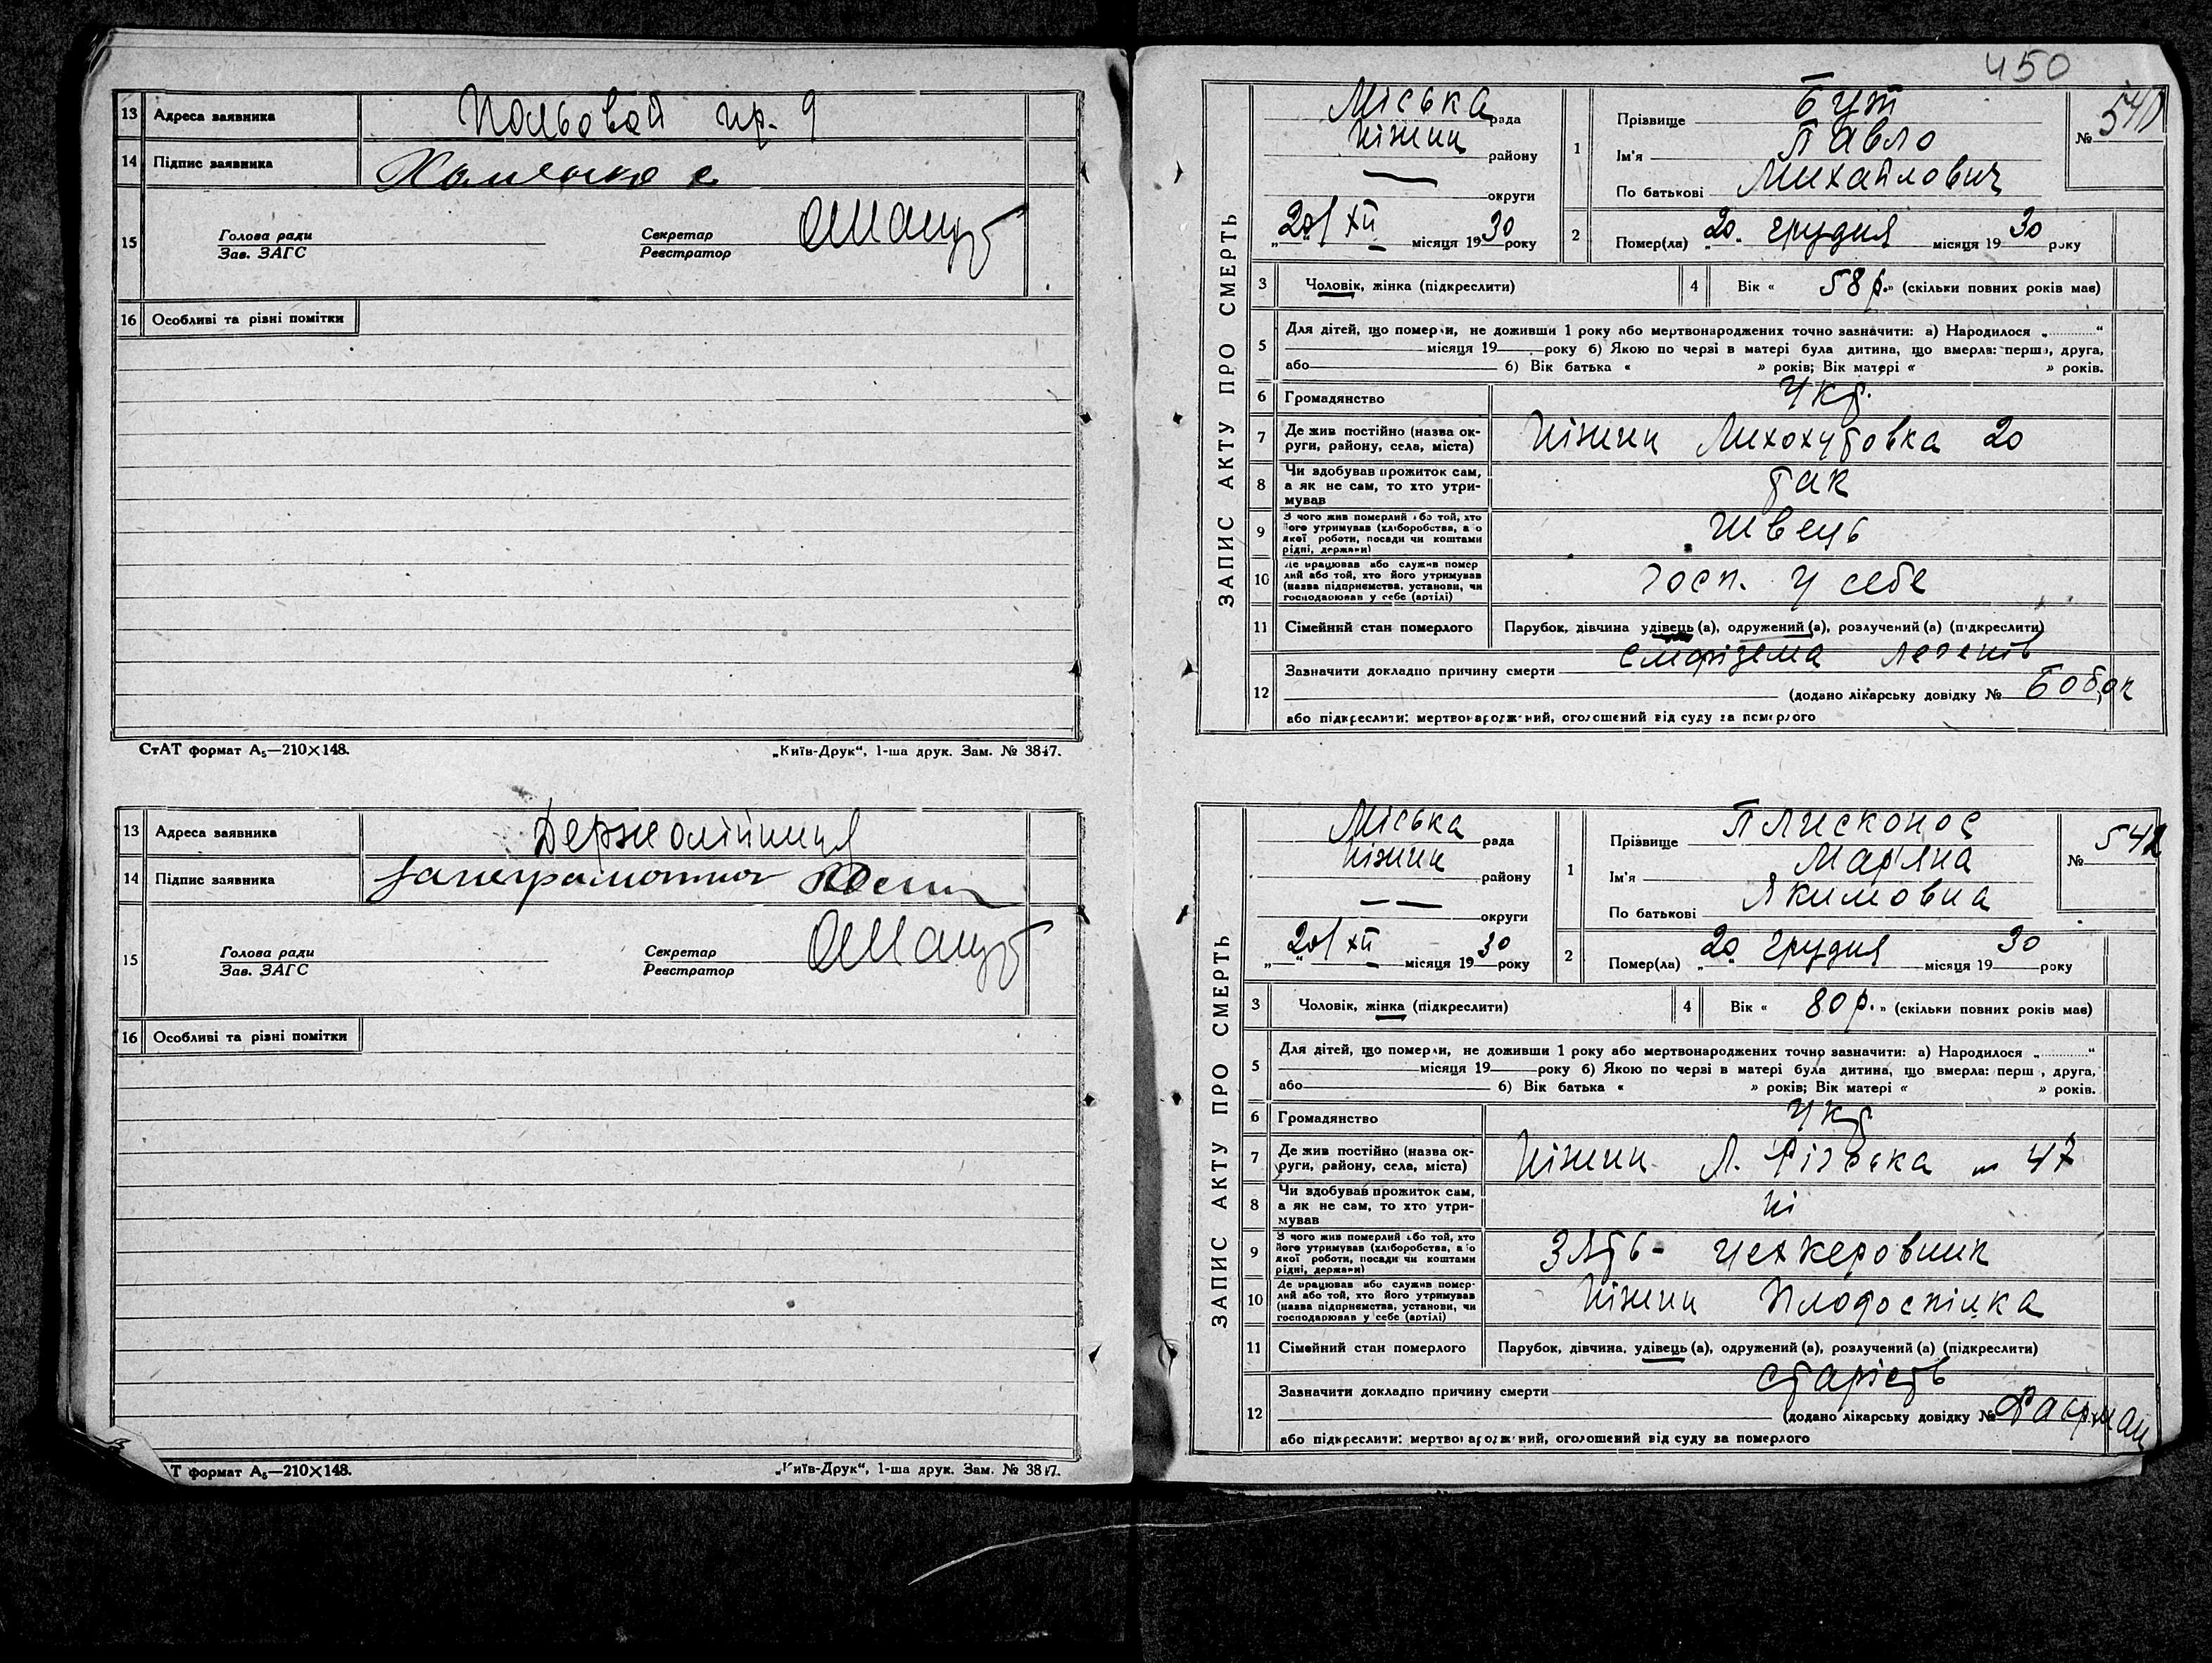 13 Адреса заявника Польовой пр. 9
14 Підпис заявника
15 Голова ради
Зав. ЗАГС
Секретар
Реєстратор
16 Особливі та різні помітки
СтАТ формат А5—210×148.
„Київ-Друк“, 1-ша друк. Зам. № 3847.
13 Адреса заявника Держолійниця
14 Підпис заявника
15 Голова ради
Зав. ЗАГС
Секретар
Реєстратор
16 Особливі та різні помітки
Т формат А5—210×148.
„Київ-Друк“, 1-ша друк. Зам. № 3847.
450
ЗАПИС АКТУ ПРО СМЕРТЬ
Міська рада
Ніжин району
— округи
„20“ XII місяця 1930 року
1 Прізвище Бут
Ім'я Павло
По батькові Михайлович
№ 541
2 Помер(ла) „20“ грудня місяця 1930 року
3 Чоловік, жінка (підкреслити)
4 Вік « 58 р.» (скільки повних років має)
5 Для дітей, що померли, не доживши 1 року або мертвонароджених точно зазначити: а) Народилося „ “
місяця 19 року б) Якою по черзі в матері була дитина, що вмерла: перша, друга,
або б) Вік батька « » років; Вік матері « » років.
6 Громадянство Укр.
7 Де жив постійно (назва ок-
руги, району, села, міста) Ніжин 20
8 Чи здобував прожиток сам,
а як не сам, то хто утри-
мував так
9 З чого жив померлий або той, хто
його утримував (хліборобства, або
якої роботи, посади чи коштами
рідні, держави) Швець
10 Де працював або служив помер
лий або той, хто його утримував
(назва підприємства, установи, чи
господарював у себе (артілі) госп. у себе
11 Сімейний стан померлого Парубок, дівчина удівець (а), одружений (а), розлучений (а) (підкреслити)
12 Зазначити докладно причину смерти Емфізема легенів
(додано лікарську довідку №
або підкреслити: мертвонароджений, оголошений від суду за померлого
ЗАПИС АКТУ ПРО СМЕРТЬ
Міська рада
Ніжин району
— — округи
„20“ XII місяця 1930 року
1 Прізвище Плисконос
Ім'я Мар'яна
По батькові Якимовна
№ 542
2 Помер(ла) „20“ грудня місяця 1930 року
3 Чоловік, жінка (підкреслити)
4 Вік « 80 р.» (скільки повних років має)
5 Для дітей, що померли, не доживши 1 року або мертвонароджених точно зазначити: а) Народилося „ “
місяця 19 року б) Якою по черзі в матері була дитина, що вмерла: перш, друга,
або б) Вік батька « » років; Вік матері « » років.
6 Громадянство Укр
7 Де жив постійно (назва ок-
руги, району, села, міста) Ніжин 47
8 Чи здобував прожиток сам,
а як не сам, то хто утри-
мував ні
9 З чого жив померлий або той, хто
його утримував (хліборобства, або
якої роботи, посади чи коштами
рідні, держави) Зять-
10 Де працював або служив помер-
лий або той, хто його утримував
(назва підприємства, установи, чи
господарював у себе (артілі) Ніжин Плодоспілка
11 Сімейний стан померлого Парубок, дівчина, удівець (а), одружений (а), розлучений (а) (підкреслити)
12 Зазначити докладно причину смерти старість
(додано лікарську довідку №
або підкреслити: мертвонароджений, оголошений від суду за померлого